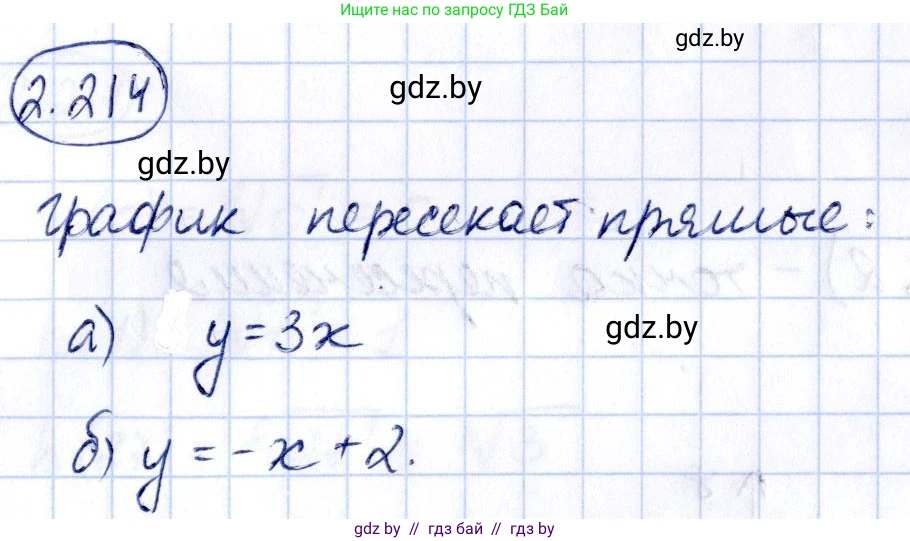 Ищите нас по запросу ГДЗ Бай
gdz.by
2.214
gdz.by
gdz.by
график пересекает прямые:
а) y = 3x
gdz.by
б) y = -x + 2.
gdz.by // гдз бай // гдз by